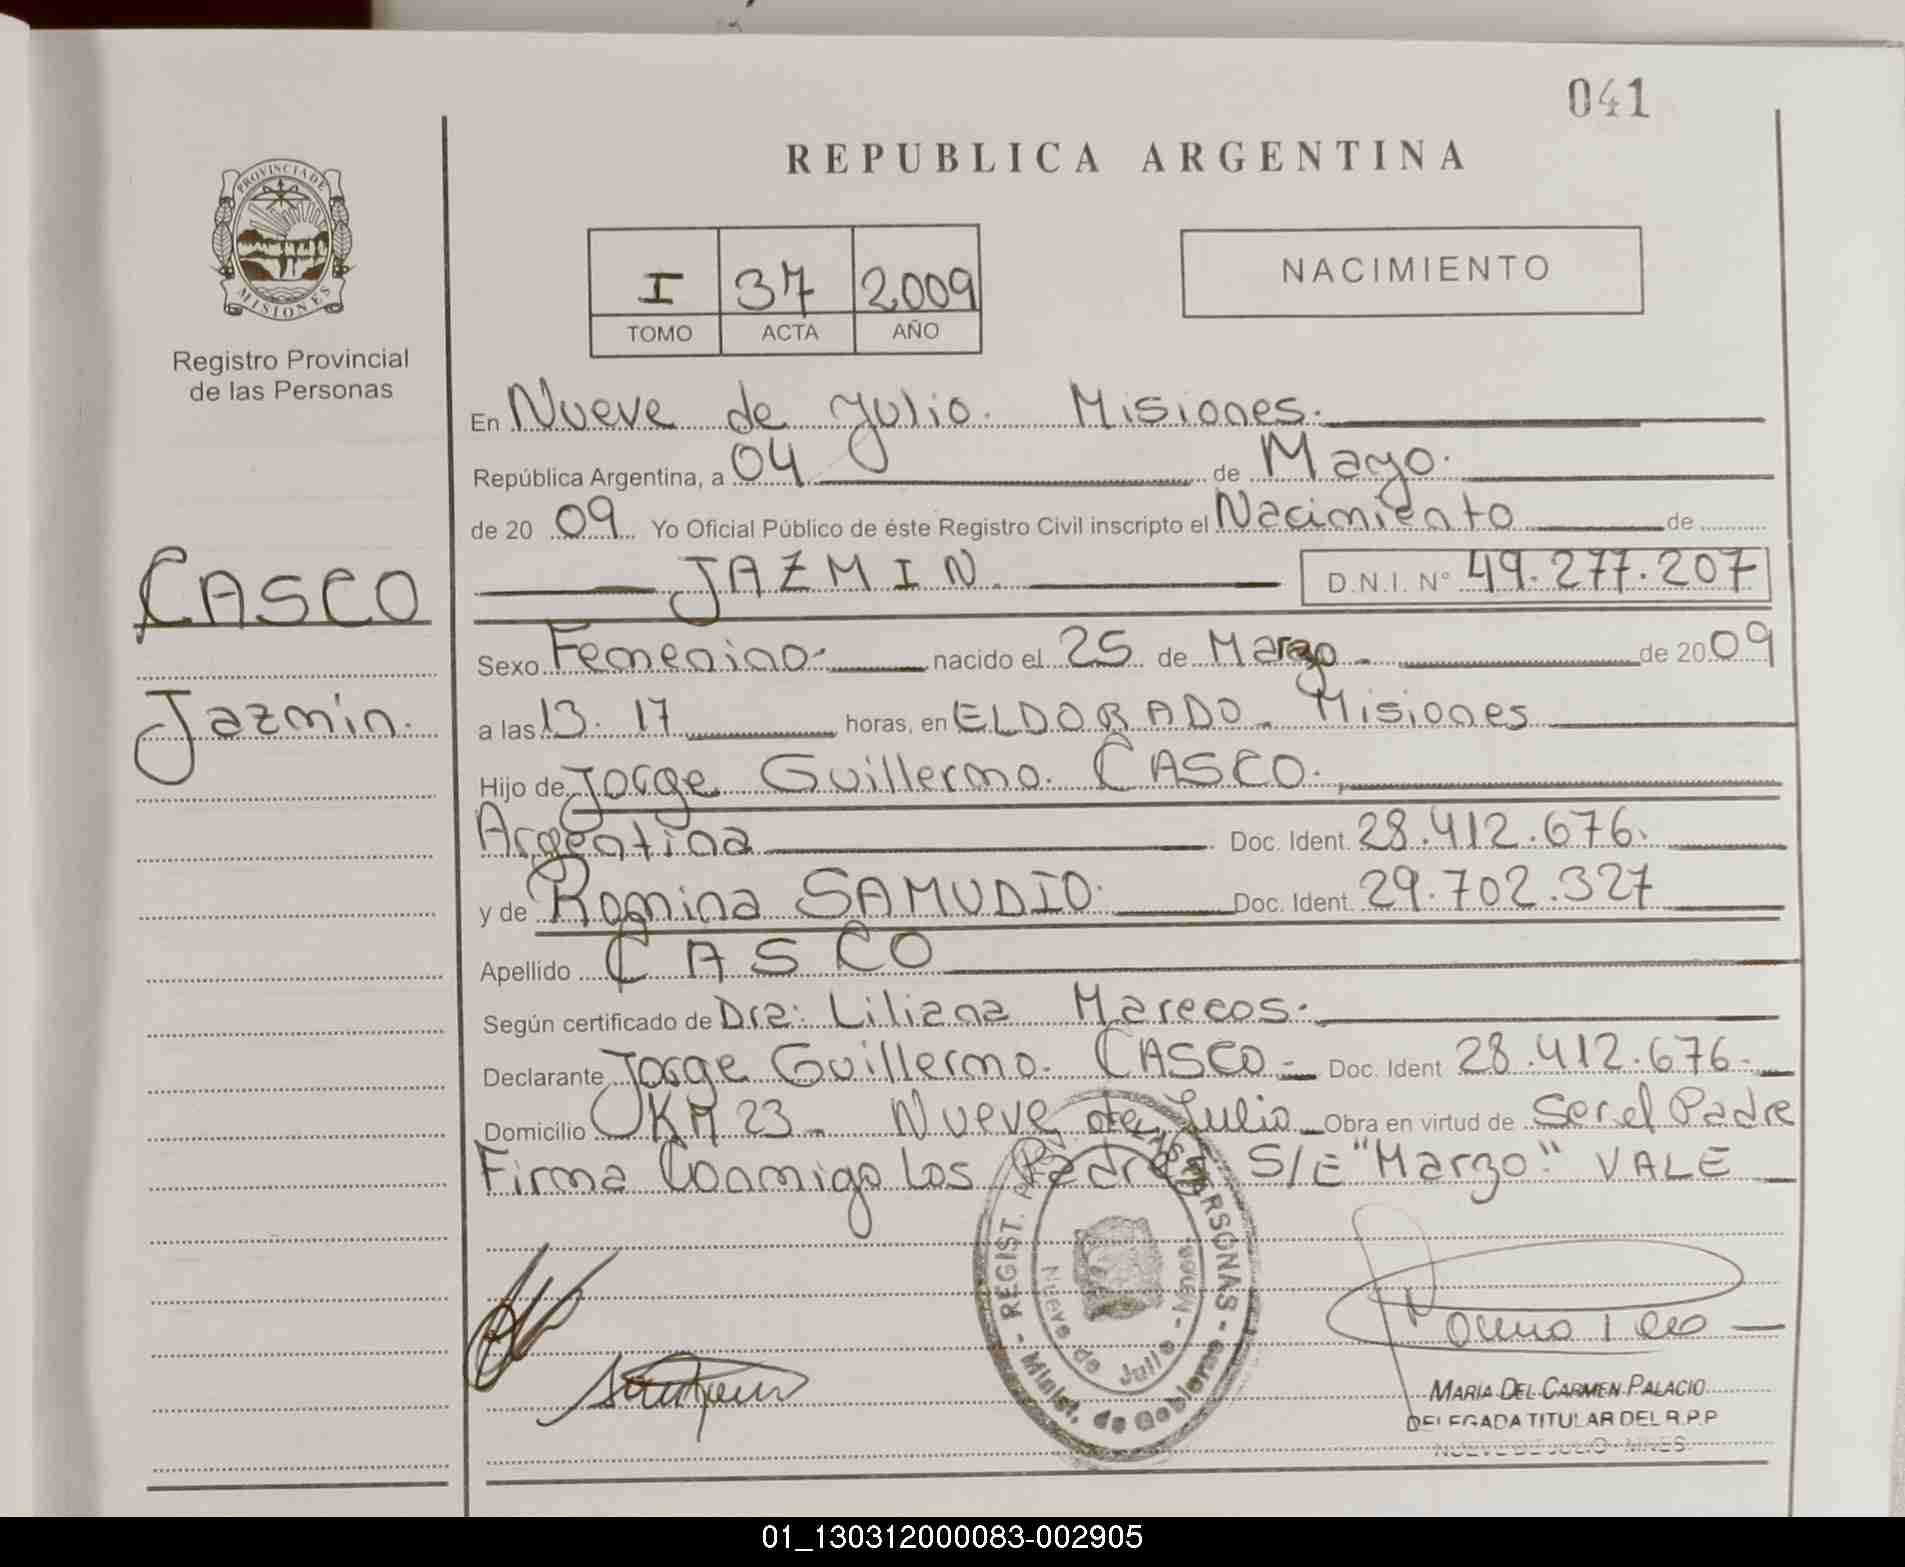 041
PROVINCIA DE
MISIONES
Registro Provincial
de las Personas
CASCO
Jazmin.
REPUBLICA ARGENTINA
I 37 2009
TOMO ACTA AÑO
NACIMIENTO
En Nueve de Julio. Misiones.
República Argentina, a 04 de Mayo.
de 20 09 Yo Oficial Público de éste Registro Civil inscripto el Nacimiento de
JAZMIN. D.N.I. Nº 49.277.207
Sexo Femenino- nacido el 25 de Marzo - de 20 09
a las 13. 17 horas, en ELDORADO - Misiones
Hijo de Jorge Guillermo. CASCO.
Argentina Doc. Ident. 28.412.676.
y de Romina SAMUDIO. Doc. Ident. 29.702.327
Apellido CASCO
Según certificado de Dra: Liliana Marecos.
Declarante Jorge Guillermo. CASCO - Doc. Ident 28.412.676.
Domicilio KM 23 - Nueve de Julio - Obra en virtud de Ser el Padre
Firma Conmigo Los Padres S/E "Marzo." VALE
- REGIST. PROV. DE LAS PERSONAS -
Minist. de Gobierno
Nueve de Julio - Mnes.
MARIA DEL CARMEN PALACIO
DELEGADA TITULAR DEL R.P.P
NUEVE DE JULIO - MNES
01_130312000083-002905